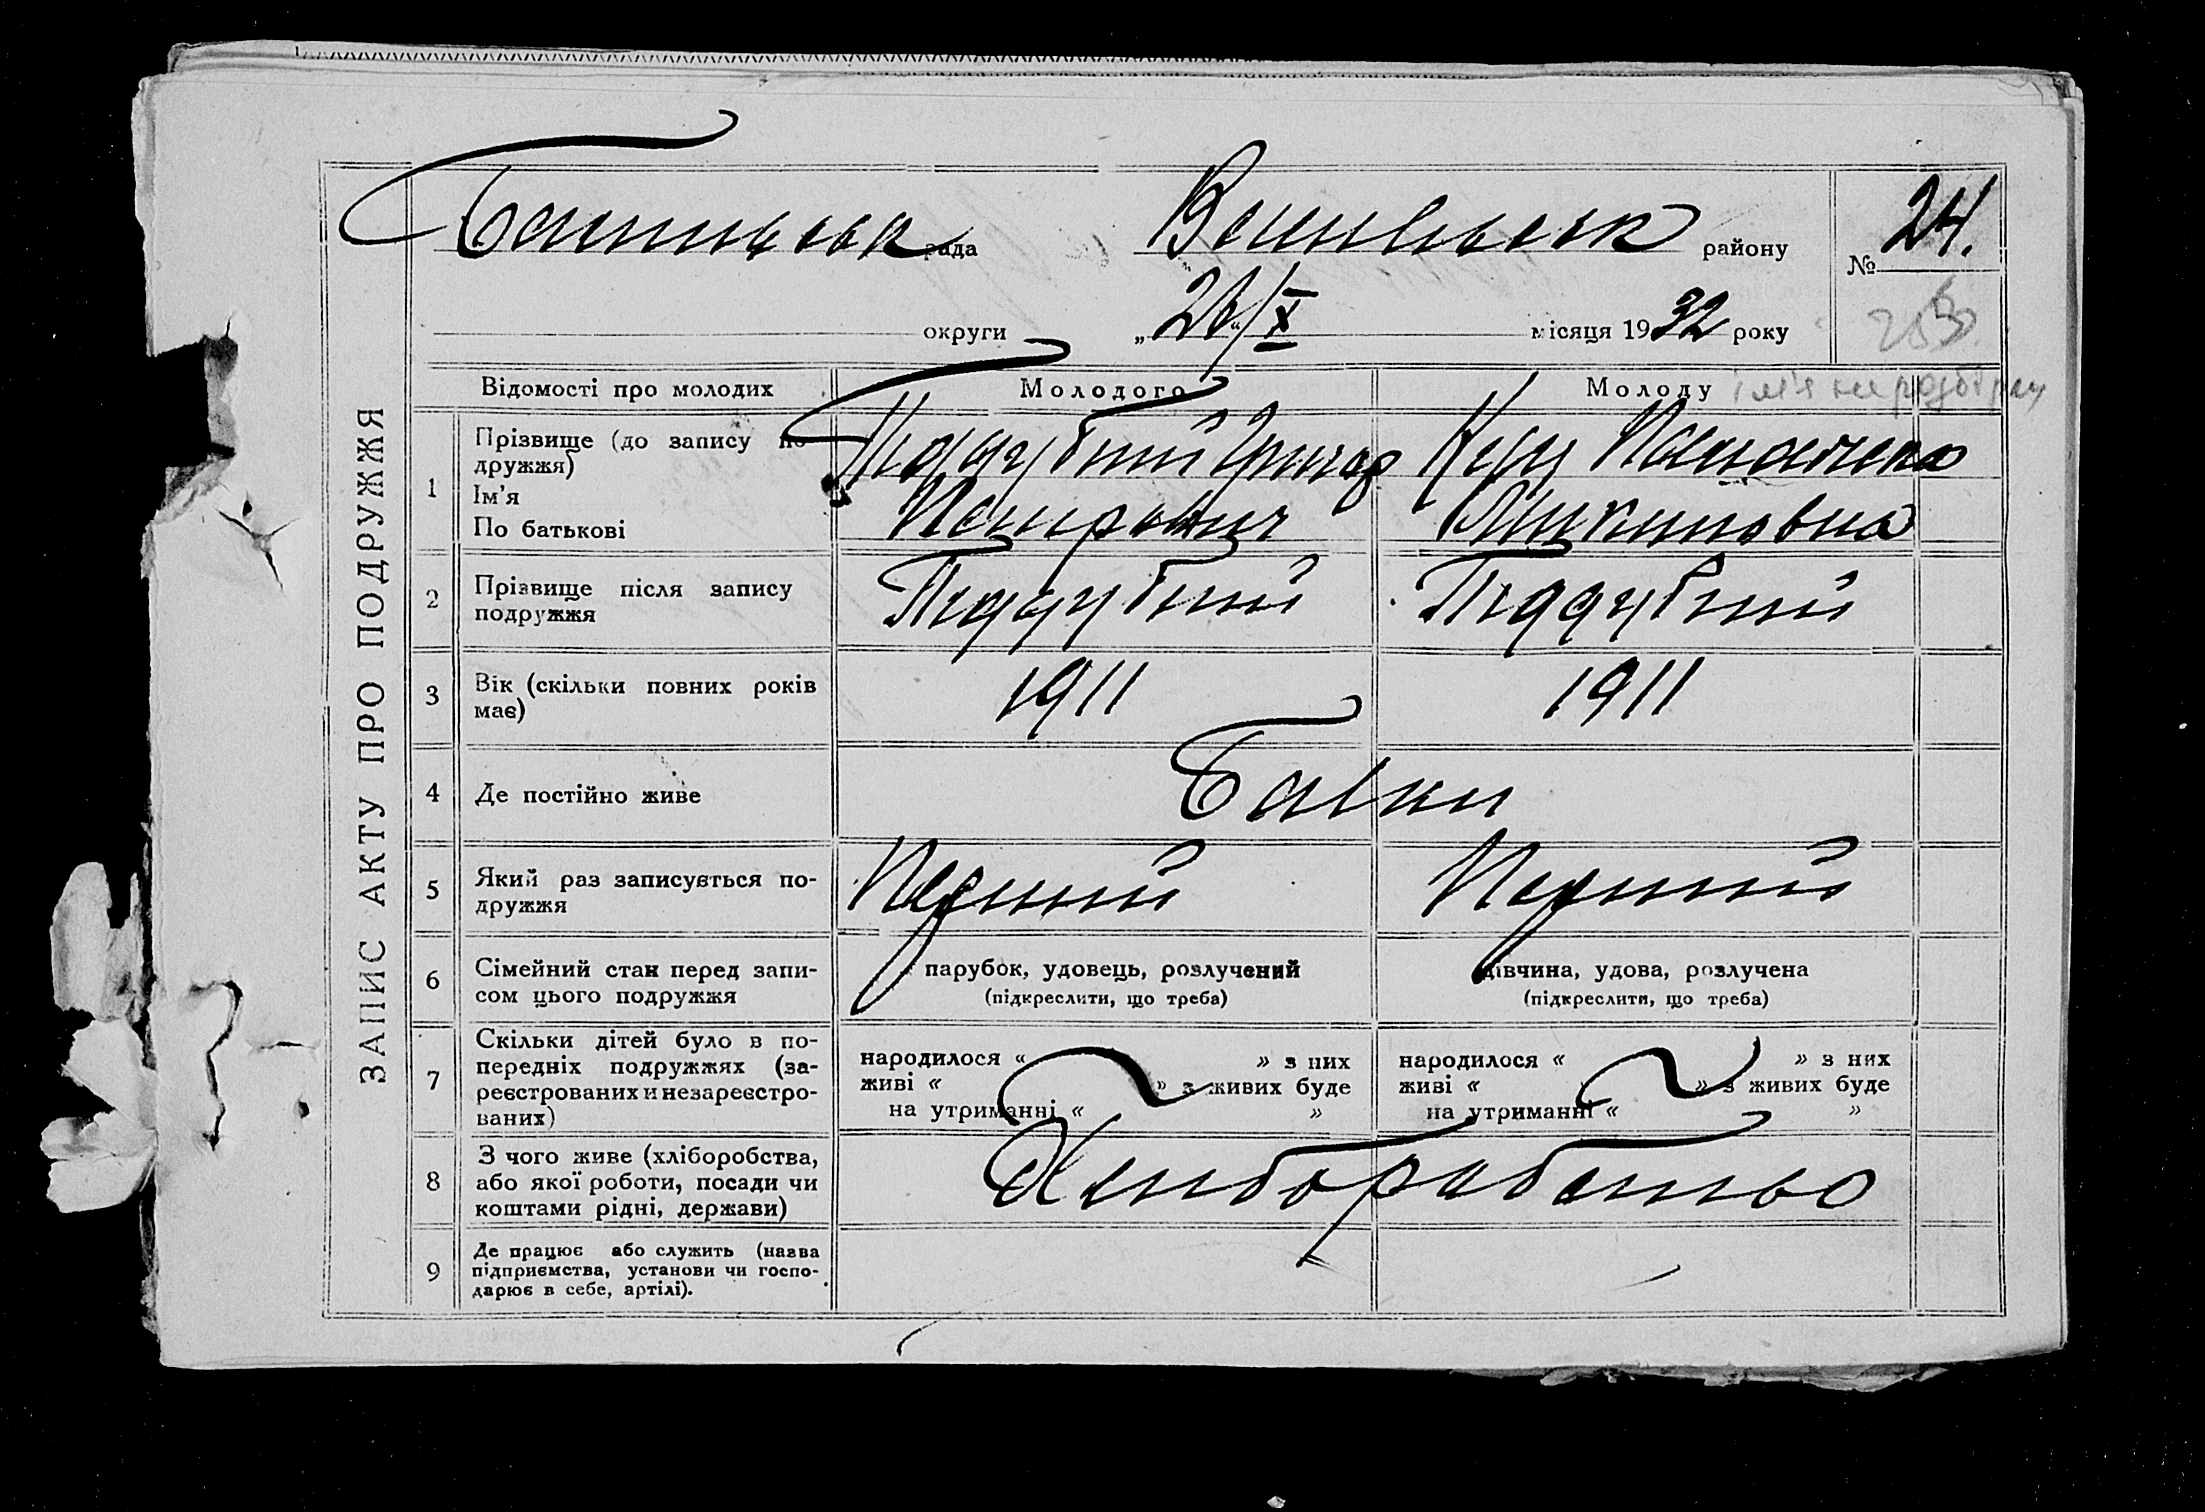 рада
району
№ 24.
округи
„26“/X місяця 1932 року
253
ЗАПИС АКТУ ПРО ПОДРУЖЖЯ
Відомості про молодих
Молодого
Молоду ім'я не розбірл
1
Прізвище (до запису по-
дружжя)
Ім'я
По батькові
Піддубний Григор
Петрович
Микитовна
2
Прізвище після запису
подружжя
Піддубний
Піддубний
3
Вік (скільки повних років
має)
1911
1911
4
Де постійно живе
Балки
5
Який раз записується по-
дружжя
Перший
Перший
6
Сімейний стан перед запи-
сом цього подружжя
парубок, удовець, розлучений
(підкреслити, що треба)
дівчина, удова, розлучена
(підкреслити, що треба)
7
Скільки дітей було в по-
передніх подружжях (за-
реєстрованих и незареєстро-
ваних)
народилося “ » з них
живі “ » з живих буде
на утриманні “ »
народилося “ » з них
живі “ » з живих буде
на утриманні “ »
8
З чого живе (хліборобства,
або якої роботи, посади чи
коштами рідні, держави)
Хлиборобство
9
Де працює або служить (назва
підприємства, установи чи госпо-
дарює в себе, артілі).